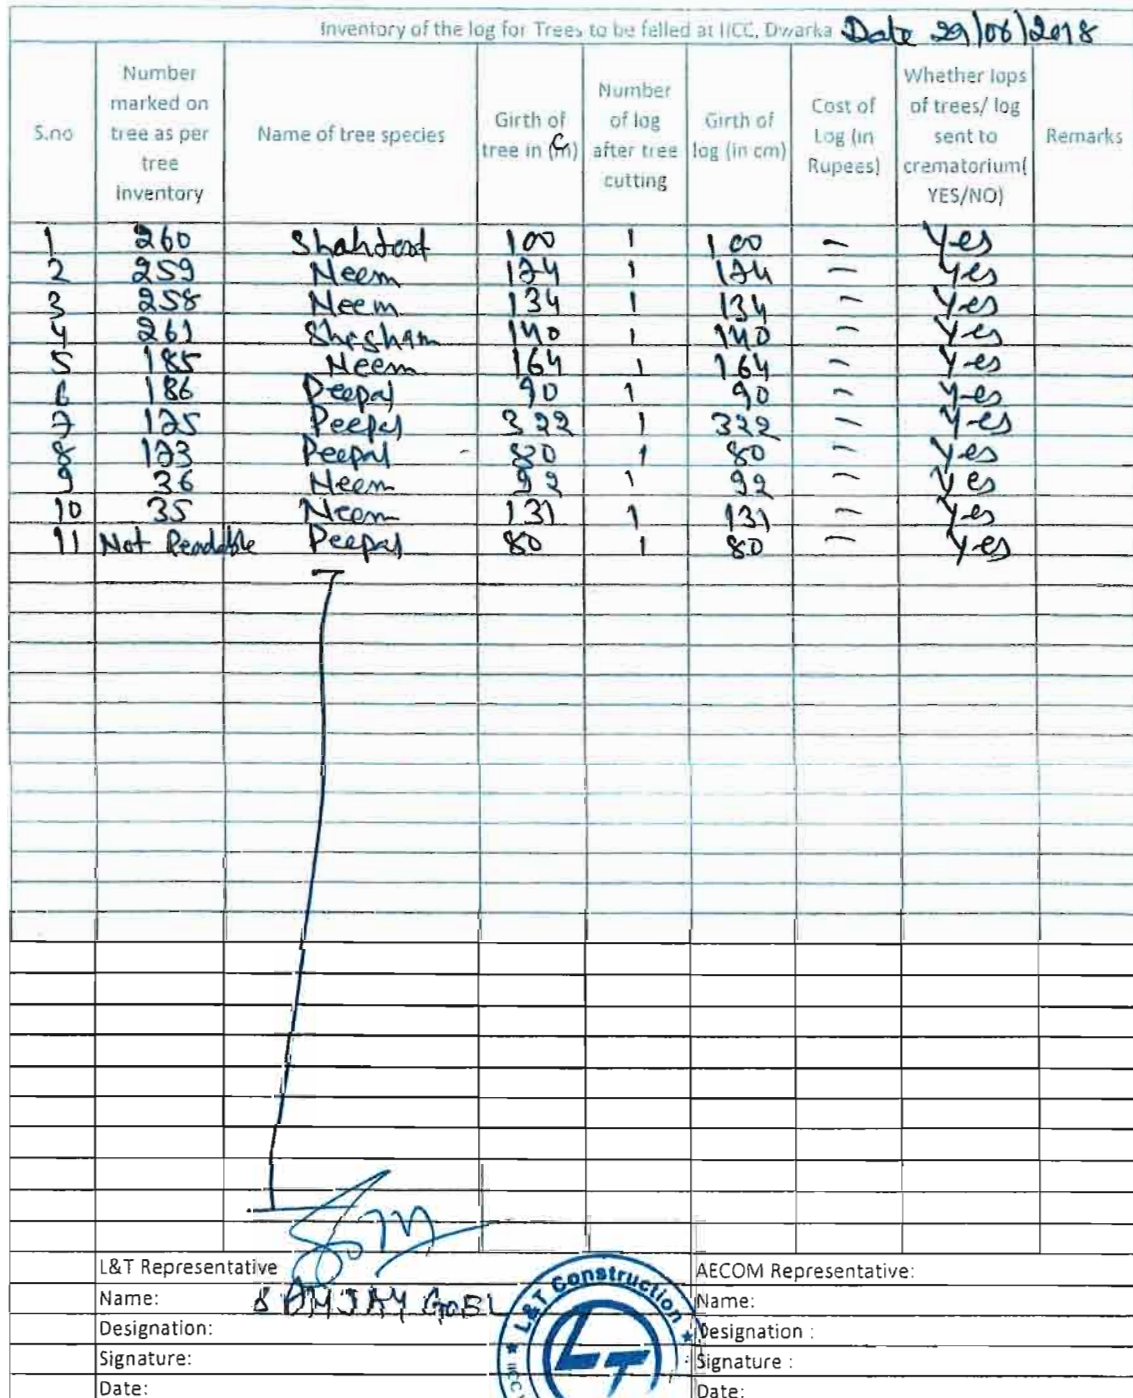 Inventory of the log for Trees to be felled at IICC, Dwarka Date 29/06/2018
S.no Number marked on tree as per tree inventory Name of tree species Girth of tree in (cm) Number of log after tree cutting Girth of log (in cm) Cost of Log (in Rupees) Whether lops of trees/ log sent to crematorium( YES/NO) Remarks
1 260 Shahtoot 100 1 100 - Yes
2 259 Neem 124 1 124 - Yes
3 258 Neem 134 1 134 - Yes
4 261 Shesham 140 1 140 - Yes
5 185 Neem 164 1 164 - Yes
6 186 Peepal 90 1 90 - Yes
7 125 Peepal 322 1 322 - Yes
8 123 Peepal 80 1 80 - Yes
9 36 Neem 92 1 92 - Yes
10 35 Neem 131 1 131 - Yes
11 Not Readable Peepal 80 1 80 - Yes
L&T Representative AECOM Representative:
Name: SANJAY GOEL Name:
Designation: Designation :
Signature: Signature :
Date: Date:
L&T Construction
LT
IICC